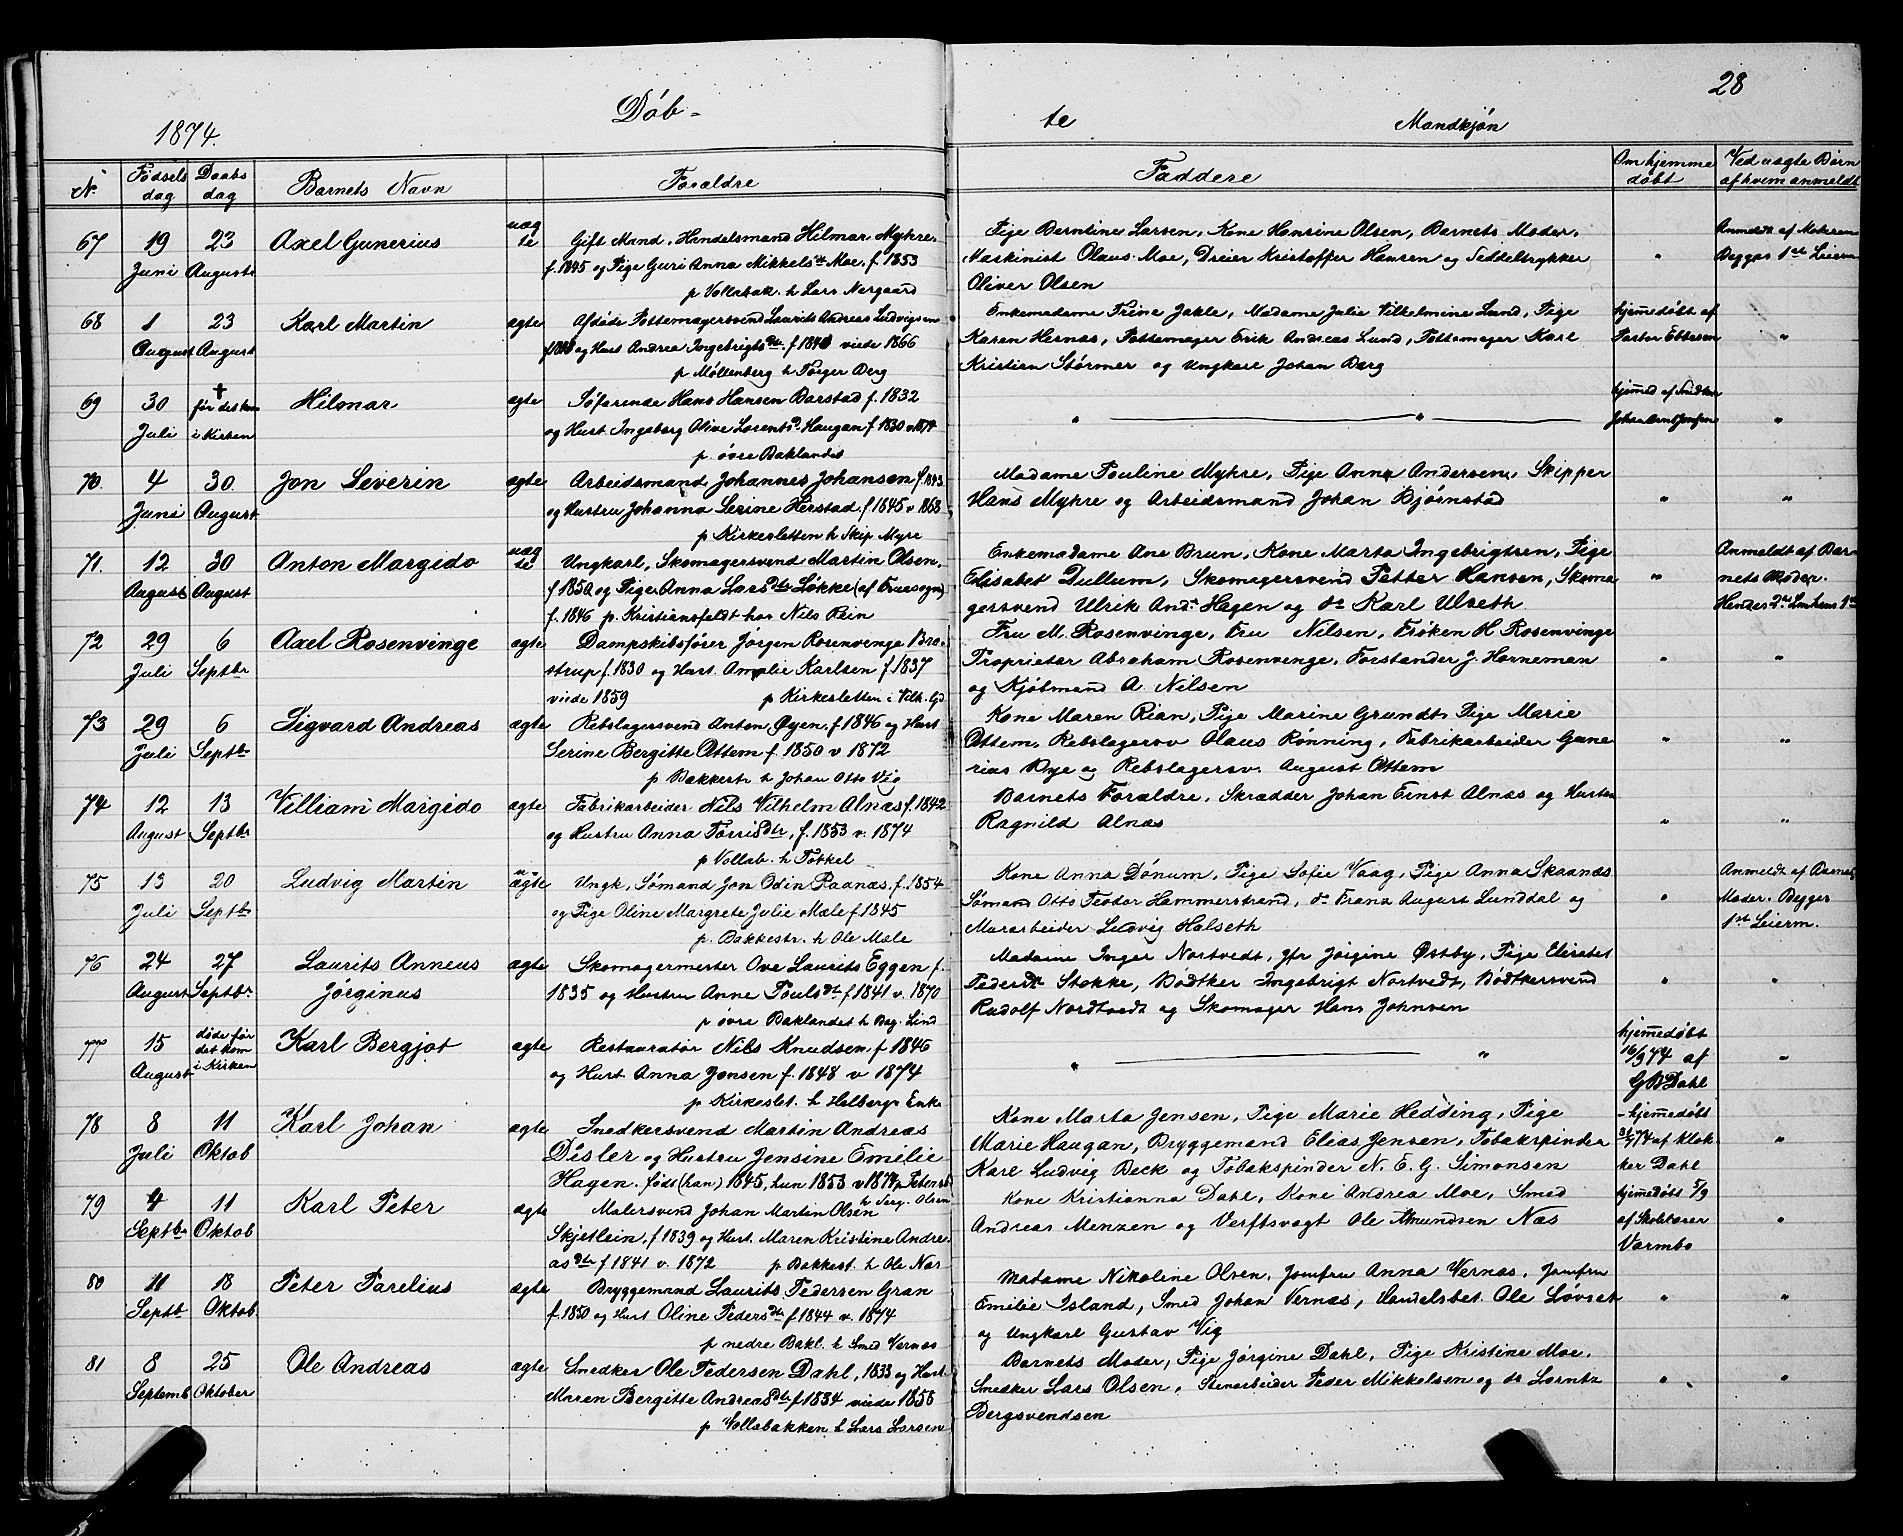 28
1874.
Døb-
te
Mandkjøn
No
Fødsels dag
Daabs dag
Barnets Navn
Forældre
Faddere
Om hjemme døbt
Ved uægte Børn af hvem anmeldt
67
19 Juni
23 August
Axel Gunerius
uægte
Gift Mand, Handelsmand Hilmar Myhre
f. 1845 og Pige Guri Anna Mikkelsdtr Moe, f 1853
p Vollabak. h Lars Nergaard
Pige Berntine Larsen, Kone Hansine Olsen, Barnets Moder,
Maskinist Olaus Moe, Dreier Kristoffer Hansen og Seddeltrykker
Oliver Olsen
"
Anmeldt af Moderen
Begges 1ste Leierm
68
1 August
23 August
Karl Martin
ægte
Afdøde Pottemagersvend Laurits Andreas Ludvigsen
og Hust Andrea Ingebrigtsdtr. viede 1866
p Møllenberg h Torger Berg
Enkemadame Trine Jakle, Madame Julie Vilhelmine Lund, Pige
Karen Hernæs, Pottemager Erik Andreas Lund, Pottemager Karl
Kristian Størmer og Ungkarl Johan Berg
hjemedøbt af
"
69
30 Juli
+ før det kom i Kirken
Hilmar
ægte
Søfarende Hans Hansen Barstad f. 1832
og Hust. Ingeborg Olive Lorentsd. Haugan f 1830 v 1874
p. øvre Baklandet
" "
hjemmed af Snedker
Johan Arnt Jensen
"
70.
4 Juni
30. August
Jon Severin
ægte
Arbeidsmand Johannes Johansen f. 1843
og Hustru Johanna Serine Herstad f 1845 v. 1868
p Kirkesletten h Skip Myre
Madame Pouline Myhre, Pige Anna Andersen, Skipper
Hans Myhre og Arbeidsmand Johan Bjørnstad
" "
71.
12 August
30 August
Anton Margido
uægte
Ungkarl, Skomagersvend Martin Olsen,
f 1850 og Pige Anna Larsdtr Løkke (af Fruesogn)
f. 1846 p. Kristiansfeldt hos Nils Rein
Enkemadame Ane Brun, Kone Marta Ingebrigtsen, Pige
Elisabet Dullum, Skomagersvend Petter Hansen, Skoma
gersvend Ulrik Andr. Hagen og do Karl Ulseth
"
Anmeldt af Bar-
nets Moder.
72
29 Juli
6 Septbr
Axel Rosenvinge
ægte
Dampskibsfører Jørgen Rosenvinge Bro-
strup f. 1830 og Hust. Amalie Karlsen f 1837
viede 1859 p Kirkesletten i Vilh. Gd
Fru M. Rosenvinge, Fru Nilsen, Frøken H Rosenvinge
Proprietær Abraham Rosenvinge, Forstander J. Horneman
og Kjøbmand A. Nilsen
" "
73
29 Juli
6 Septbr
Sigvard Andreas
ægte
Rebslagersvend Anton Øyen, f 1846 og Hust
Serine Bergitte Ottem f. 1850 v 1872
p Bakkestr. h Johan Otto Vig
Kone Maren Rian, Pige Marine Grundt, Pige Marie
Ottem, Rebslagersv Olaus Rønning, Fabrikarbeider Gune
rius Bye og Rebslagersv. August Ottem
" "
74
12 August
13 Septbr
Villiam Margido
ægte
Fabrikarbeider Nils Vilhelm Alnæs f. 1842
og Hustru Anna Torrisdtr, f. 1853 v. 1874
p Vollab. h Tokkel
Barnets Forældre, Skrædder Johan Ernst Alnæs og Hustru
Ragnild Alnæs
" "
75
13 Juli
20 Septbr
Ludvig Martin
uægte
Ungk, Sømand Jon Odin Raanæs, f. 1854
og Pige Oline Margrete Julie Mæle f 1845
p. Bakkestr. h Ole Mæle
Kone Anna Dønum, Pige Sofie Vaag, Pige Anna Skaanæs
Sømand Otto Teodor Hammerstrand, do Franz August Lunddal og
Murarbeider Ludvig Halseth
"
Anmeldt af Barnets
Moder. Begges
1ste Leierm.
76
24 August
27 Septbr.
Laurits Anneus
Jørginus
ægte
Skomagermester Ove Laurits Eggen f.
1835 og Hustru Anne Poulsdtr f 1841 v. 1870
p øvre Baklandet h Bag. Lind
Madame Inger Nortvedt, Jfr Jørgine Østby, Pige Elisabet
Pedersdtr Stokke, Bødtker Ingebrigt Nortvedt, Bødtkersvend
Rudolf Nordtvedt og Skomager Hans Johnsen
" "
77
15 August
døde før det kom i Kirken
Karl Bergjot
ægte
Restauratør Nils Knudsen f 1846
og Hust Anna Jensen f. 1848 v 1874
p Kirkeslet. h Holbergs Enke
" "
hjemmedøbt
16/9 74 af
G B Dahl
"
78
8 Juli
11 Oktob
Karl Johan
ægte
Snedkersvend Martin Andreas
Disler og Hustru Jensine Emelie
Hagen. født (han) 1845, hun 1853 v 1874
Kone Marta Jensen, Pige Marie Hedding, Pige
Marie Haugan, Bryggemand Elias Jensen, Tobakspinder
Karl Ludvig Beck og Tobakspinder N. E. G. Simonsen
hjemmedøbt
31/7 74 af Klok
ker Dahl
"
79
4 Septbr
11 Oktob
Karl Peter
ægte
Malersvend Johan Martin Olsen
Skjetlein, f 1839 og Hust. Maren Kristine Andre
asdtr f 1841 v. 1872 p Bakkest. h Ole Næs
Kone Kristianna Dahl, Kone Andrea Moe, Smed
Andreas Menzen og Verftsvagt Ole Amundsen Næs
hjemedøbt 5/9
af Skolelærer
Varmbo
"
80
11 Septb
18 Oktob.
Peter Parelius
ægte
Bryggemand Laurits Pedersen Gran
f. 1850 og Hust Oline Pedersdtr f 1844 v. 1874
p nedre Bakl. h Smed Vernæs
Madame Nikoline Olsen, Jomfru Anna Vernæs, Jomfru
Emilie Island, Smed Johan Vernæs, Handelsbet. Ole Løvset
og Ungkarl Gustav Vig
" "
81
8 Septemb
25 Oktober
Ole Andreas
ægte
Smedker Ole Pedersen Dahl, 1833 og Hust.
Maren Bergitte Andreasdtr f 1834 viede 1856
p Vollabakken h Lars Larsen
Barnets Moder, Pige Jørgine Dahl, Pige Kristine Moe,
Smedker Lars Olsen, Stenarbeider Peder Mikkelsen og do Lorntz
Bergsvendsen
" "